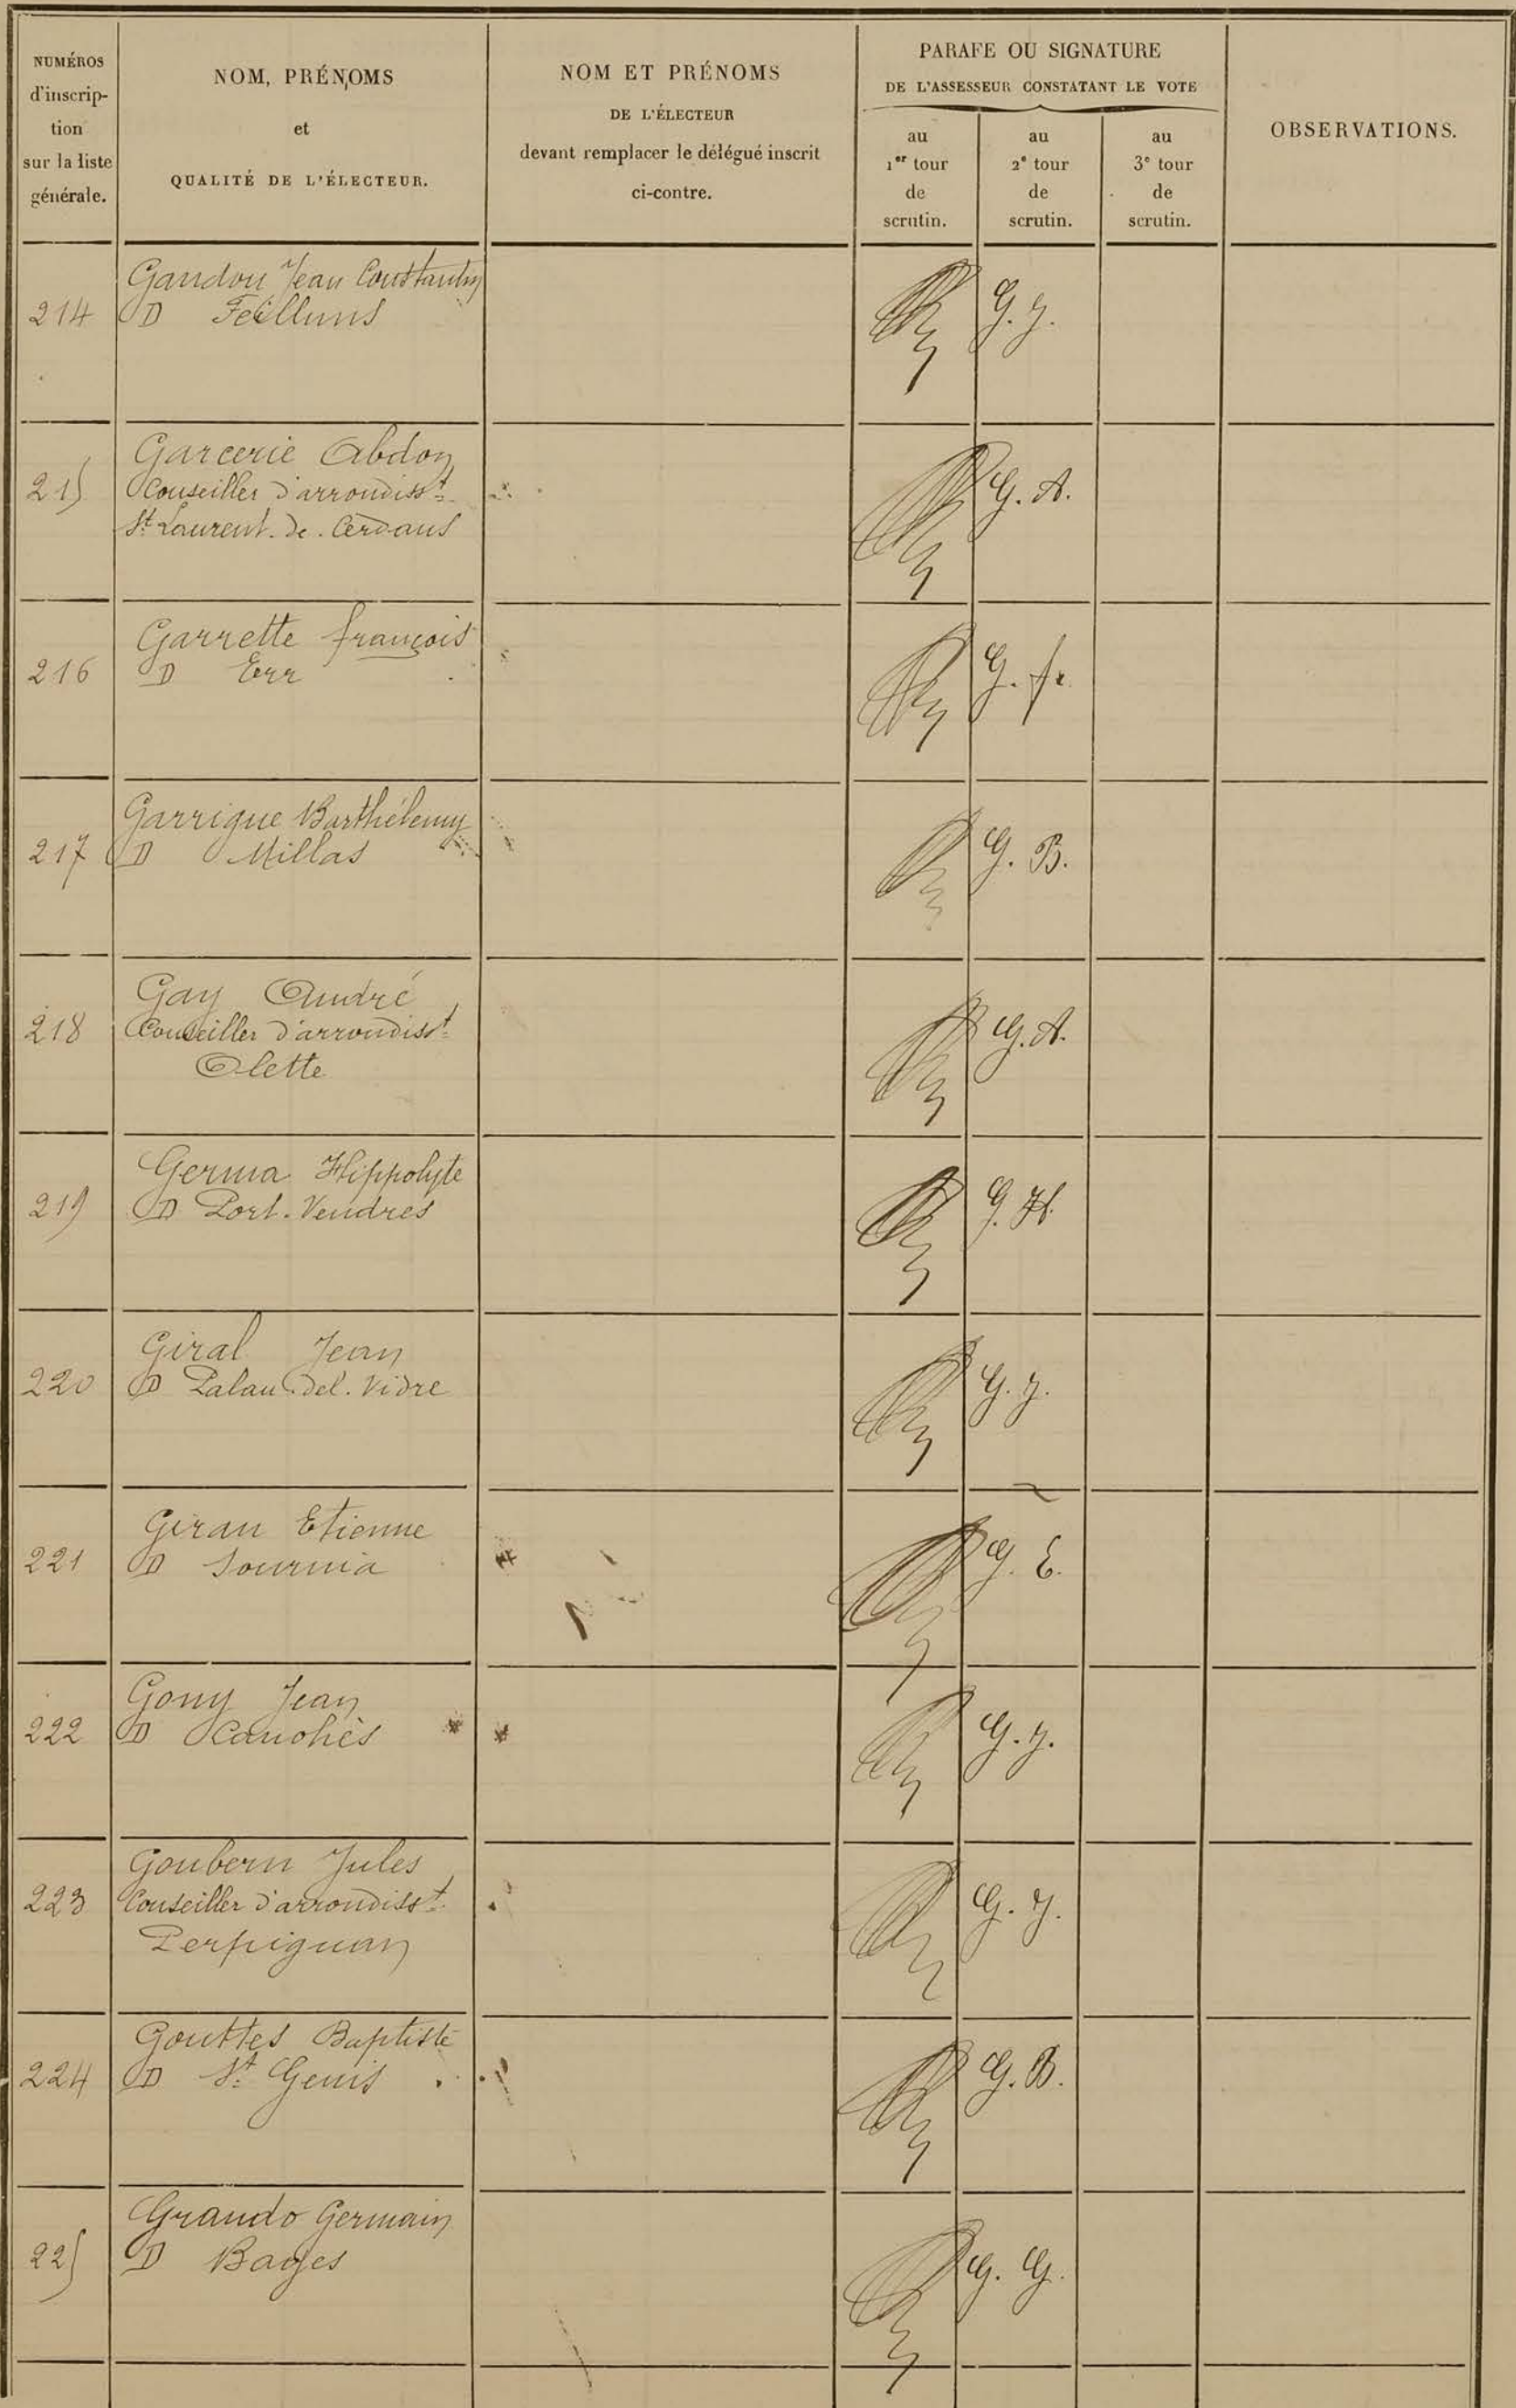 NUMÉROS
d'inscrip-
tion
sur la liste
générale.
NOM, PRÉNOMS
et
QUALITÉ DE L'ÉLECTEUR.
NOM ET PRÉNOMS
DE L'ÉLECTEUR
devant remplacer le délégué inscrit
ci-contre.
PARAFE OU SIGNATURE
DE L'ASSESSEUR CONSTATANT LE VOTE
au
1er tour
de
scrutin.
au
2e tour
de
scrutin.
au
3e tour
de
scrutin.
OBSERVATIONS.
Gandou Jean Constantin
214 D Feilluns G. J.
Garcerie Abdon
215 Conseiller d'arrondisst G. A.
St Laurent. de. Cerdans
Garrette françois
216 D Err G. fr.
Garrigue Barthélemy
217 D Millas G. B.
Gay André
218 Conseiller d'arrondisst G. A.
Olette
Germa Hippolyte
219 D Port-Vendres G. H.
Giral Jean
220 D Palau. del. Vidre G. J.
Girau Etienne
221 D Sournia G. E.
Gony Jean
222 D Canohès G. J.
Goubern Jules
223 Conseiller d'arrondisst G. J.
Perpignan
Gouttes Baptiste
224 D St Genis G. B.
Grando Germain
225 D Bages G. G.